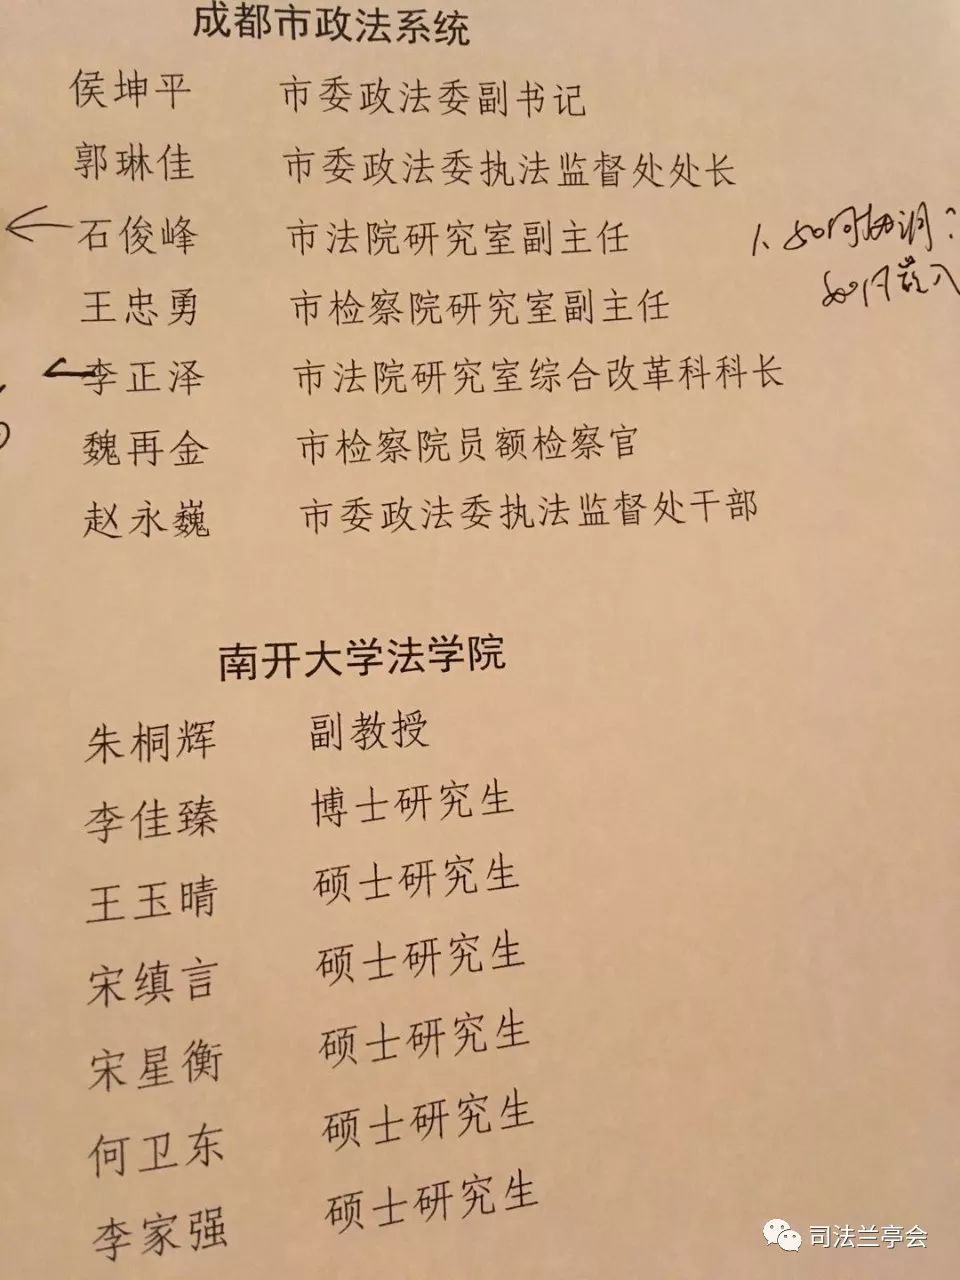 成都市政法系统
侯坤平 市委政法委副书记
郭琳佳 市委政法委执法监督处处长
石俊峰 市法院研究室副主任
1、如何协调?
王忠勇 市检察院研究室副主任
如何
李正泽 市法院研究室综合改革科科长
魏再金 市检察院员额检察官
赵永巍 市委政法委执法监督处干部
南开大学法学院
朱桐辉 副教授
李佳臻 博士研究生
王玉晴 硕士研究生
宋缜言 硕士研究生
宋星衡 硕士研究生
何卫东 硕士研究生
李家强 硕士研究生
司法兰亭会